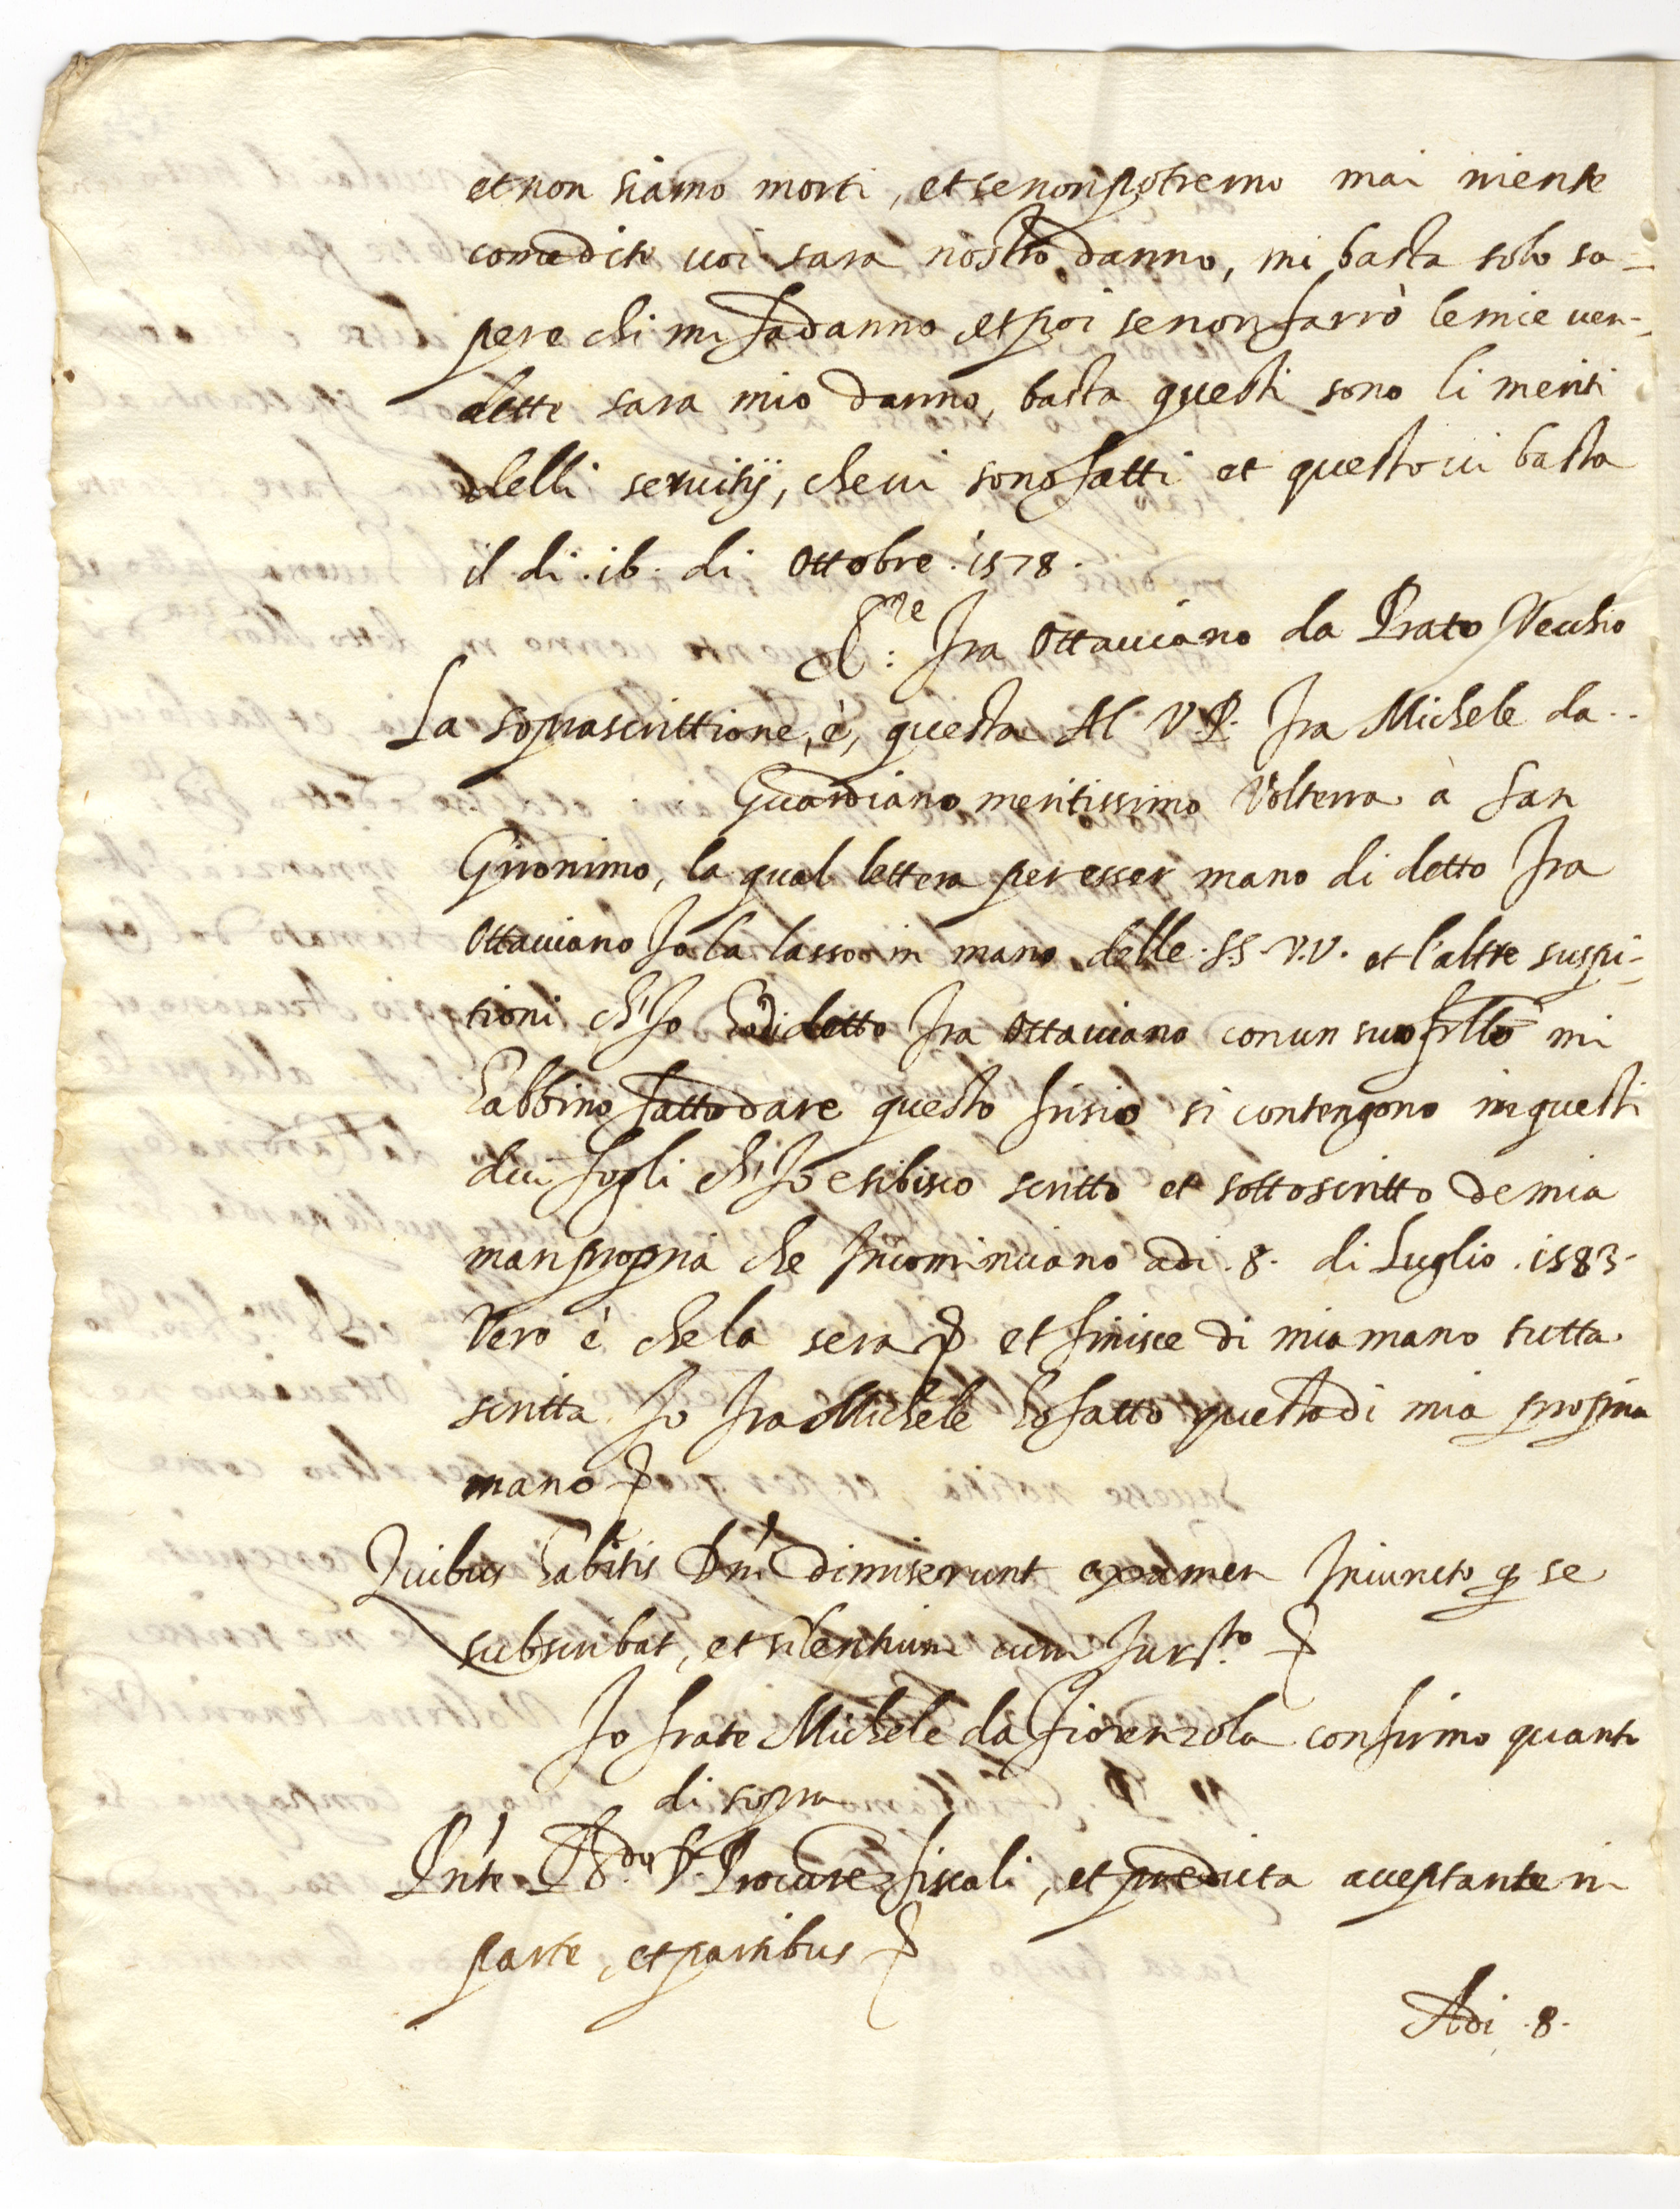 et non siamo morti, et se non potremo mai niente
come dite voi sara nostro danno, mi basta solo sa-
pere chi mi fa danno, et poi se non farrò le mie ven-
dette sara mio danno, basta questi sono li meriti
delli servitij, che vi sono fatti et questo vi basta
il di .16. di Ottobre .1578.
fra Ottaviano da Prato Vechio
La soprascrittione, è, questa Al V. P. fra Michele da..
Guardiano meritissimo Volterra à San
Gironimo, la qual lettera per esser mano di detto fra
Ottaviano Io la lasso in mano delle .S.S. V.V. et l'altre suspi-
tioni ch'Io ho di detto fra Ottaviano con un suo frĺlo mi
habbino fatto dare questo frisio si contengono in questi
dui fogli ch'Io esibisco scritto et sottoscritto de mia
man propria che Incominciano adi .8. di Luglio .1583.
Vero è che la sera et finisce di mia mano tutta
scritta Io fra Michele ho fatto questo di mia propria
mano
Quibus habitis Dni dimiserunt examen Iniuncto q se
subscribat, et silentium cum Iur.to
Io frate Michele da Fiorenzola confirmo quanto
di sopra
Pnte R.do P. Procure fiscali, et predicta acceptante in
parte, et partibus
Adi .8.